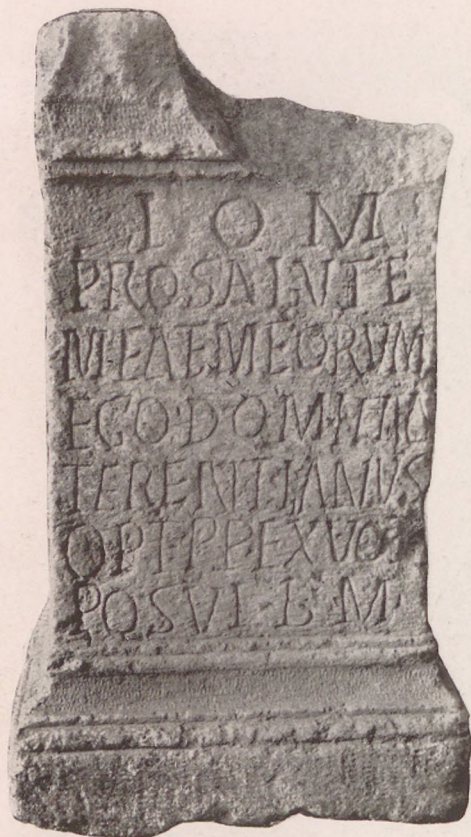 I O M
PRO SALVTE
M·EAE·MEORVM
EGO·DOMITIO
TERENTIANVS
EX VO
POSVI·L·M